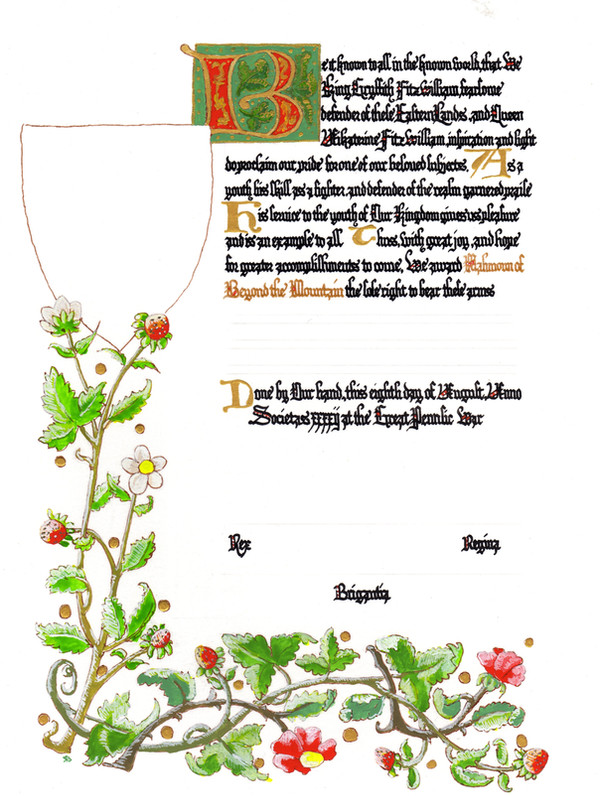 Be it known to all in the known world, that We
King Gryffith FitzWilliam, fearlorne
defender of these Eastern Lands, and Queen
Aikaterine FitzWilliam, inspiration and light
do proclaim our pride for one of our beloved subjects. As a
youth his skill as a fighter and defender of the realm garnered praise
His service to the youth of Our Kingdom gives us pleasure
and is an example to all Thus, with great joy, and hope
for greater accomplishments to come, We award Mahmoun of
Beyond the Mountain the sole right to bear these arms
Done by Our hand, this eighth day of August, Anno
Societas xxxxij at the Great Pennsic War
Rex Regina
Brigantia